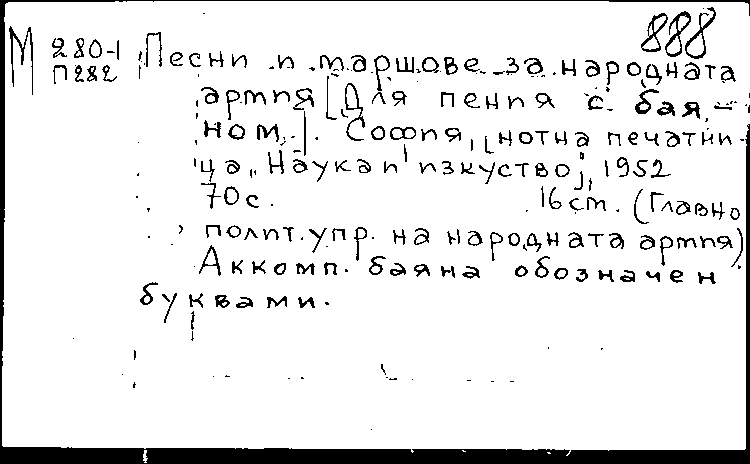 888
М 280-1
П282
Песни и маршове за народната
армия [Для пения с бая-
ном]. София, [нотна печатни-
ца „Наука и изкуство], 1952
70 с. 16 cm. (Главно
полит. упр. на народната армия)
Аккомп. баяна обозначен
буквами.